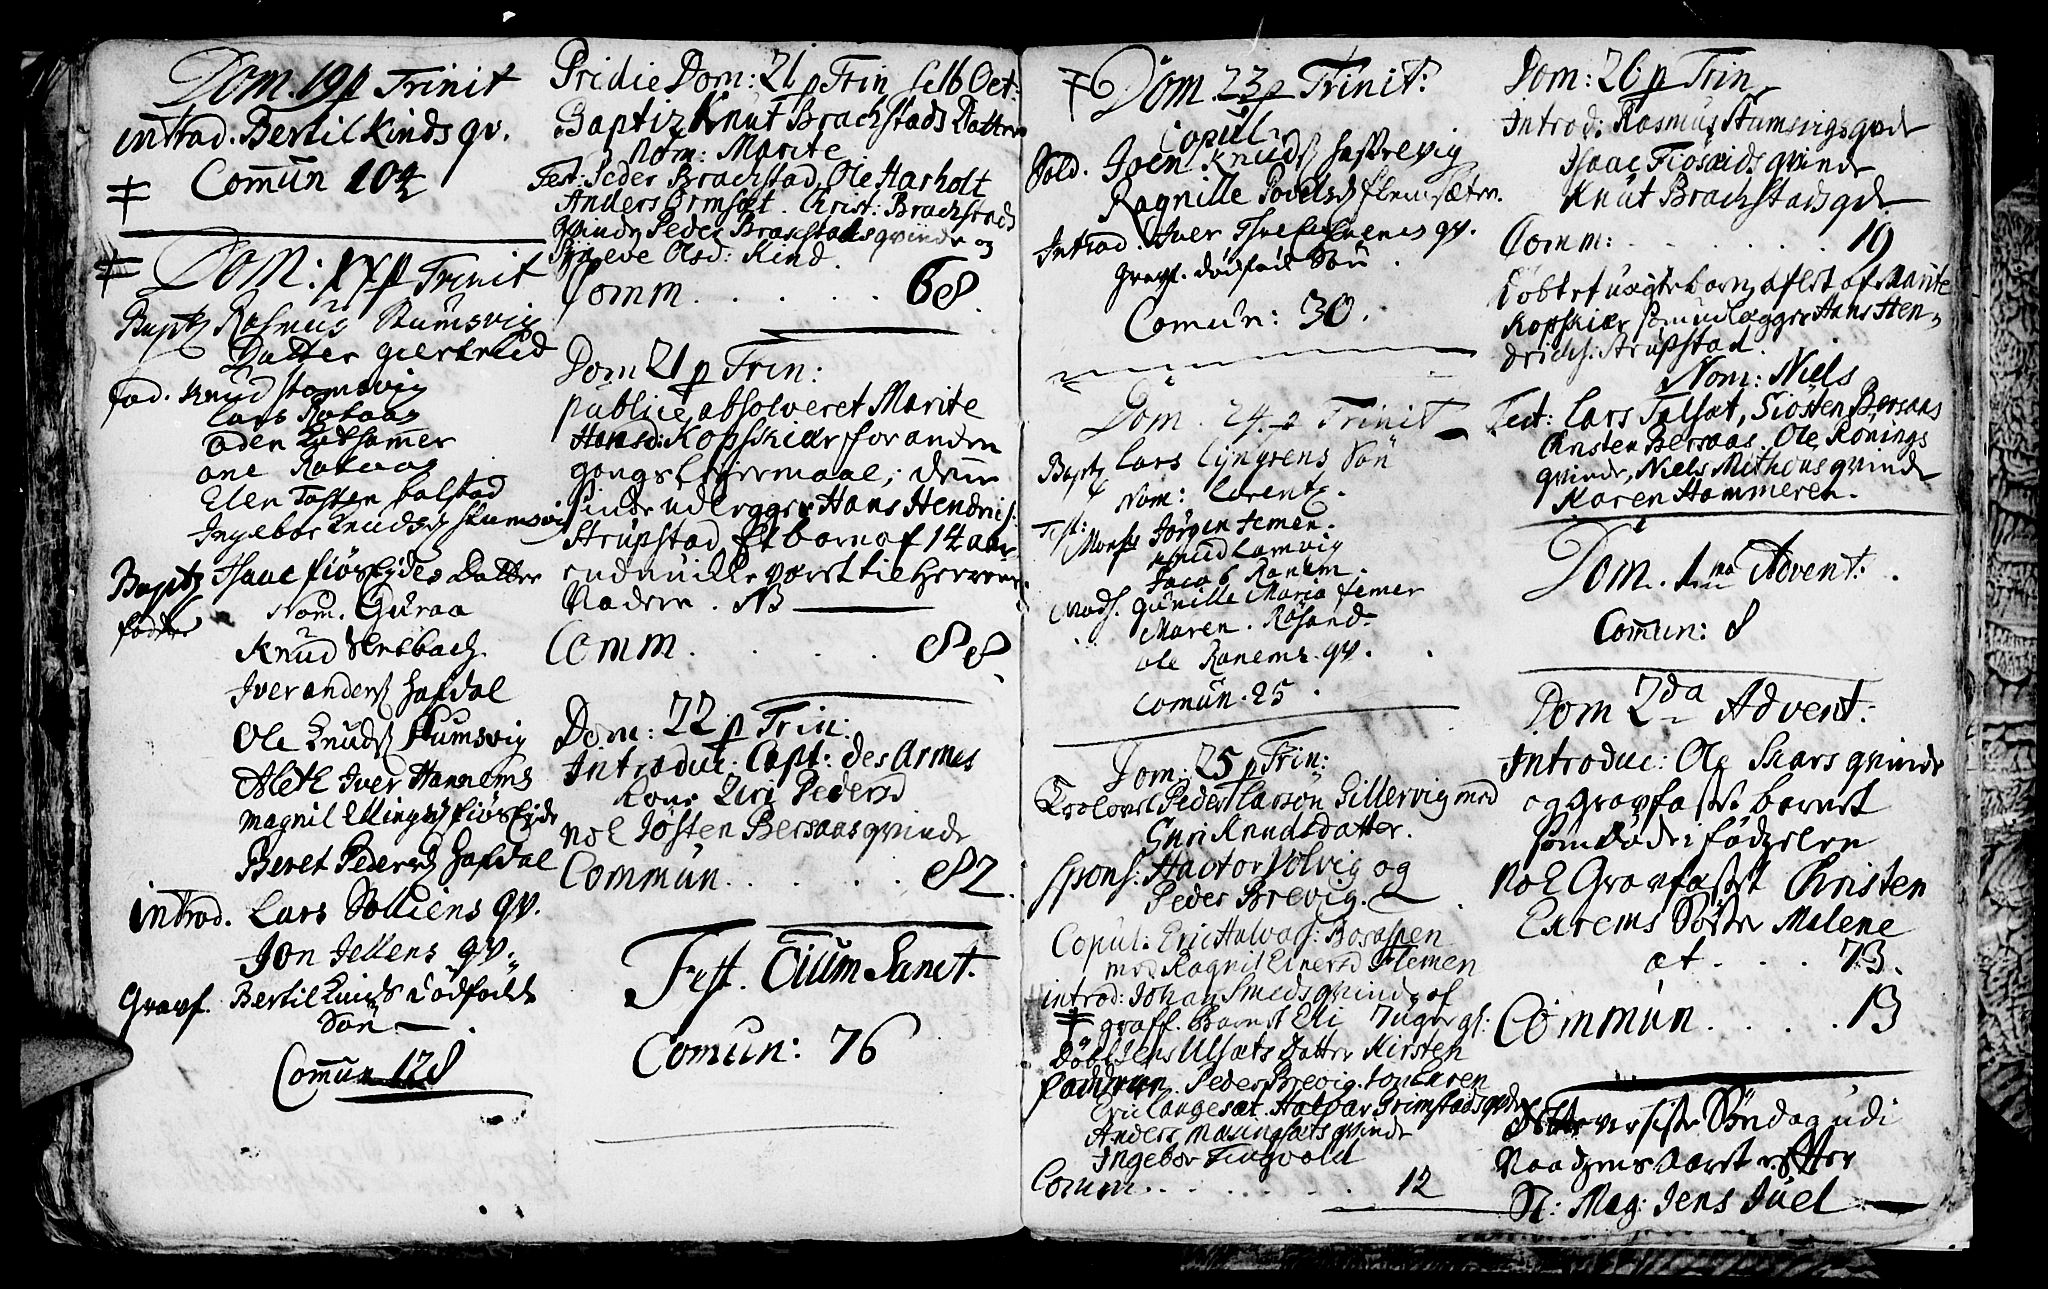 Dom. 19 p Trinit
introd. Bertil Kinds qv.
Comũn 104
Dom: XX p Trinit
Bapt Rasmus Stumsvig
Datter giertrud
fad. Knud Stomsvig
Lars Rakaas
Oden
ane Rakaas
Elen Tosten balstad
Ingebor Knudsd Stumsvig
Baptz Isaac fiørseides Datter
Nom. Guraa
fadder
Knud Ersbach
Iver anders hafdal
Ole Knuds Stumsvig
Aleth Iver Hannems
magnil Ellingsd fiørseide
Beret Pedersd hafdal
introd. Lars Solliens qv.
Jon Jellens qv.
Gravf. Bertil Kinds dødfødde
Søn
Comũn 128
Pridie Dom: 21 p Trin d. 16 Oct:
Baptiz Knut Brachstads Datter
Nom: Marite
Test: Peder Brachstad, Ole Harholt
Anders Ormsæt. Christ: Brachstads
Qvinde Peder Brachstads qvinde og
Olsd: Kind.
Comm. . . . . . 68
Dom 21 p Trin:
publice absolveret Marite
Hansd: Kopskiær for anden
gongs leyermaal; denne
sinde udlegger Hans Hendrichs:
Strupstad et barn af 14 aar
end nu ille været til Herrens
Nadere. NB
Comm. . . . . 88
Dom: 22 p Trin:
Introduc: Capt: des Armes
Kone Ziri Pedersd
Nok Josten Bersaas qvinde
Commũn. . . . . 82.
Fest. Oĩum Sanct.
Comũn: 76
Dom. 23 p Trinit:
Copul.
Sold. Joen Knuds hastevig
Ragnille Povelsd flemsæter.
Introd. Iver qv.
Gravf. dødfød Søn.
Comũn: 30.
Dom. 24 p Trinit
Bapt Lars Lyngrens Søn
Nom: Lorentz.
Test: Monsr Jörgen femer.
Knud Lamvig
Jacob Ranem.
Mads. gunille Maria femer
Maren. Røsand.
ole Ranems qv.
comũn. 25.
Dom: 25 p Trin:
Trolovet Peder Larsøn Gillervig med
Guri Knudsdatter.
Spons: Hactor Volvig og
Peder Brevig.
Copul: Eric Halvors: Boraspen
med Ragnil Einersd Flemen
introd: Johan Smeds qvinde, af
graff. Barnet Eli 7 uger gl:
Døbt Jens Ulsæts Datter Kirsten
Faddrene Peder Brevig. Jon Exren
Eric Langesæt. Halvor Grimstads qvinde
Anders Nasingsæts qvinde
Ingebor Tingvold
Comm. . . . . . . 12
Dom: 26 p Trin.
Introd: Rasmus Stumsvigs qvde
Isaac Fiøseids qvinde
Knut Brachstads qde
Comm: . . . . . . 19
Døbt et uægte barn aflet af Marite
Kopskiær som udlægger Hans Hen-
drichs: Strupstad.
Nom: Niels
Test: Lars Talsæt, Siosten Bersaas
Christen Bersaas. Ole Ronings
qvinde, Niels Mithous qvinde
Karen Hammeren.
Dom. 1.ma Advent:
Comũn: 8
Dom 2da Advent:
Introduc: Ole Skars qvinde
og gravfæst barnet
som døde i fødselen
Nok Gravfæst Christen
Exrems Søster Malene
æt. . . . 73.
Commũn. . . . . 13
Dette var siste Søndag udi
Naadzens aaret efter
Sl: Mag: Jens Juel.